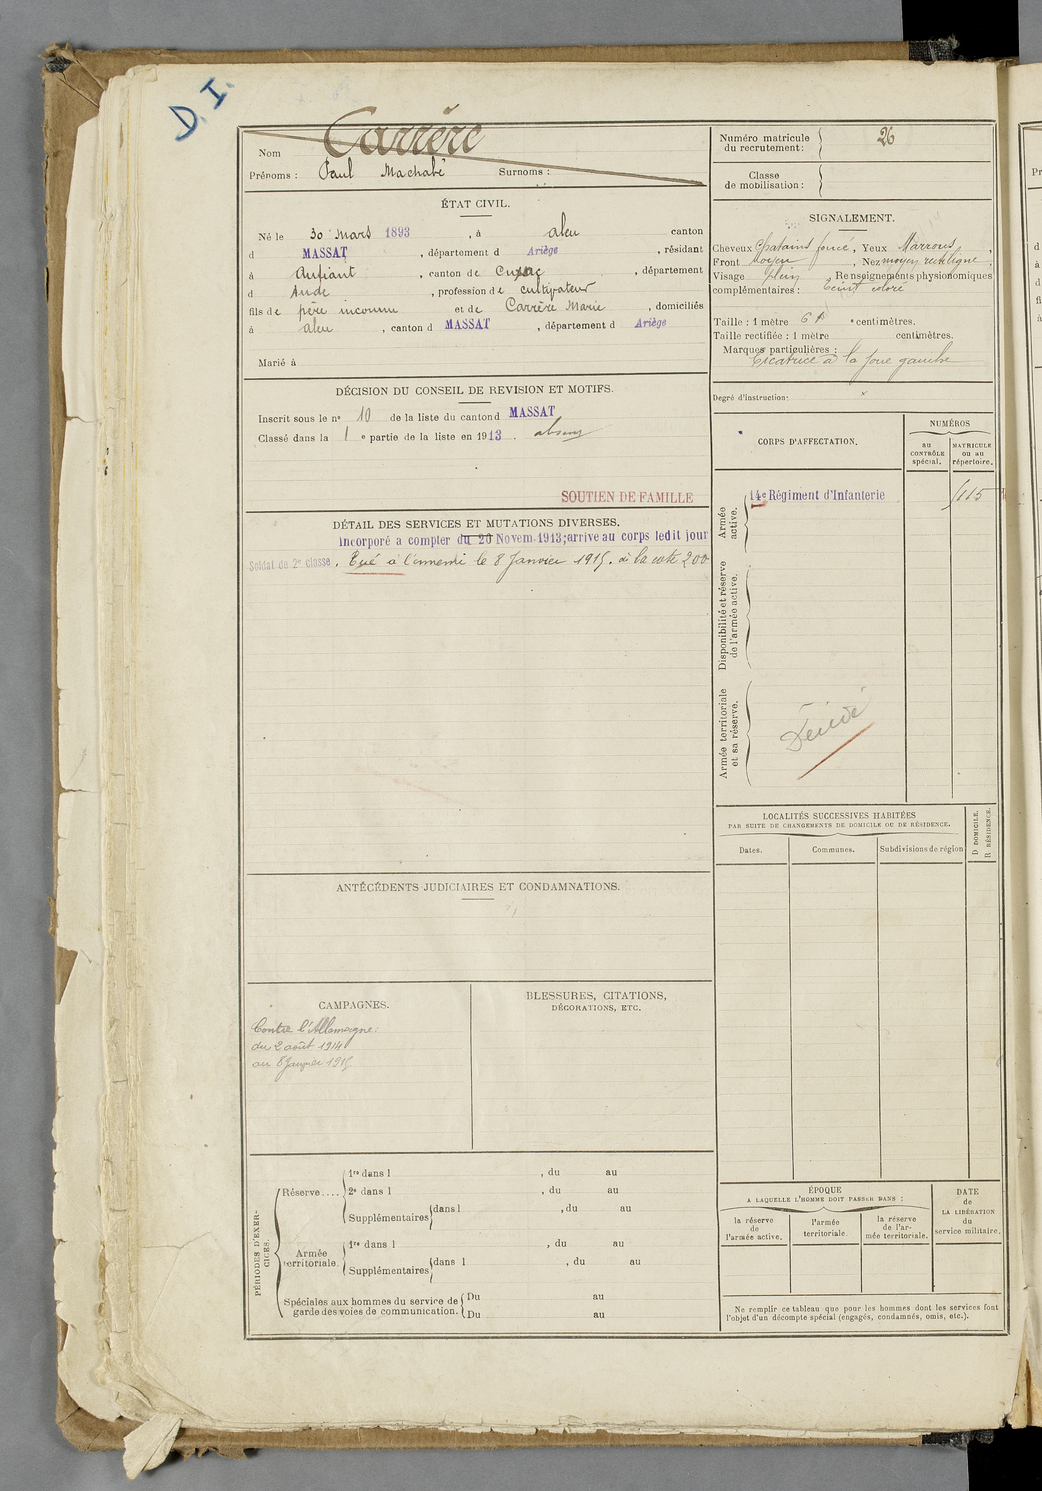 D. I.
Carrère
Nom
Prénoms : Paul Machabé Surnoms :
ÉTAT CIVIL.
Né le 30 Mars 1893, à aleu canton
d MASSAT, département d Ariège, résidant
à Aufiant, canton de Cuxac, département
d Aude, profession de cultivateur
fils de père inconnu et de Carrère Marie, domiciliés
à aleu, canton d MASSAT, département d Ariège
Marié à
DÉCISION DU CONSEIL DE REVISION ET MOTIFS.
Inscrit sous le nº 10 de la liste du canton d MASSAT
Classé dans la 1 e partie de la liste en 1913. absent
SOUTIEN DE FAMILLE
DÉTAIL DES SERVICES ET MUTATIONS DIVERSES.
Incorporé à compter du 20 Novem. 1913; arrivé au corps ledit jour
Soldat de 2e classe. Tué à l'ennemi le 8 Janvier 1915. à la cote 200
ANTÉCÉDENTS JUDICIAIRES ET CONDAMNATIONS.
CAMPAGNES.
Contre l'Allemagne:
du 2 août 1914
au 8 Janvier 1915
BLESSURES, CITATIONS,
DÉCORATIONS, ETC.
PÉRIODES D'EXER-
CICES.
Réserve....
1re dans l , du au
2e dans l , du au
Supplémentaires dans l , du au
Armée
territoriale.
1re dans l , du au
Supplémentaires dans l , du au
Spéciales aux hommes du service de
garde des voies de communication.
Du au
Du au
Numéro matricule
du recrutement: 26
Classe
de mobilisation:
SIGNALEMENT.
Cheveux Chatains foncé, Yeux Marrons,
Front Moyen, Nez moyen rectiligne,
Visage plein, Renseignements physionomiques
complémentaires : teint coloré
Taille : 1 mètre 61 centimètres.
Taille rectifiée : 1 mètre centimètres.
Marques particulières :
Cicatrice à la joue gauche
Degré d'instruction:
CORPS D'AFFECTATION.
NUMÉROS
au
CONTRÔLE
spécial.
MATRICULE
ou au
répertoire.
Armée
active.
14e Régiment d'Infanterie
1115
Disponibilité et réserve
de l'armée active.
Armée territoriale
et sa réserve.
Décédé
LOCALITÉS SUCCESSIVES HABITÉES
PAR SUITE DE CHANGEMENTS DE DOMICILE OU DE RÉSIDENCE.
Dates.
Communes.
Subdivisions de région
D DOMICILE.
R RÉSIDENCE.
ÉPOQUE
A LAQUELLE L'HOMME DOIT PASSER DANS :
la réserve
de
l'armée active.
l'armée
territoriale.
la réserve
de l'ar-
mée territoriale.
DATE
de
LA LIBÉRATION
du
service militaire.
Ne remplir ce tableau que pour les hommes dont les services font
l'objet d'un décompte spécial (engagés, condamnés, omis, etc.).